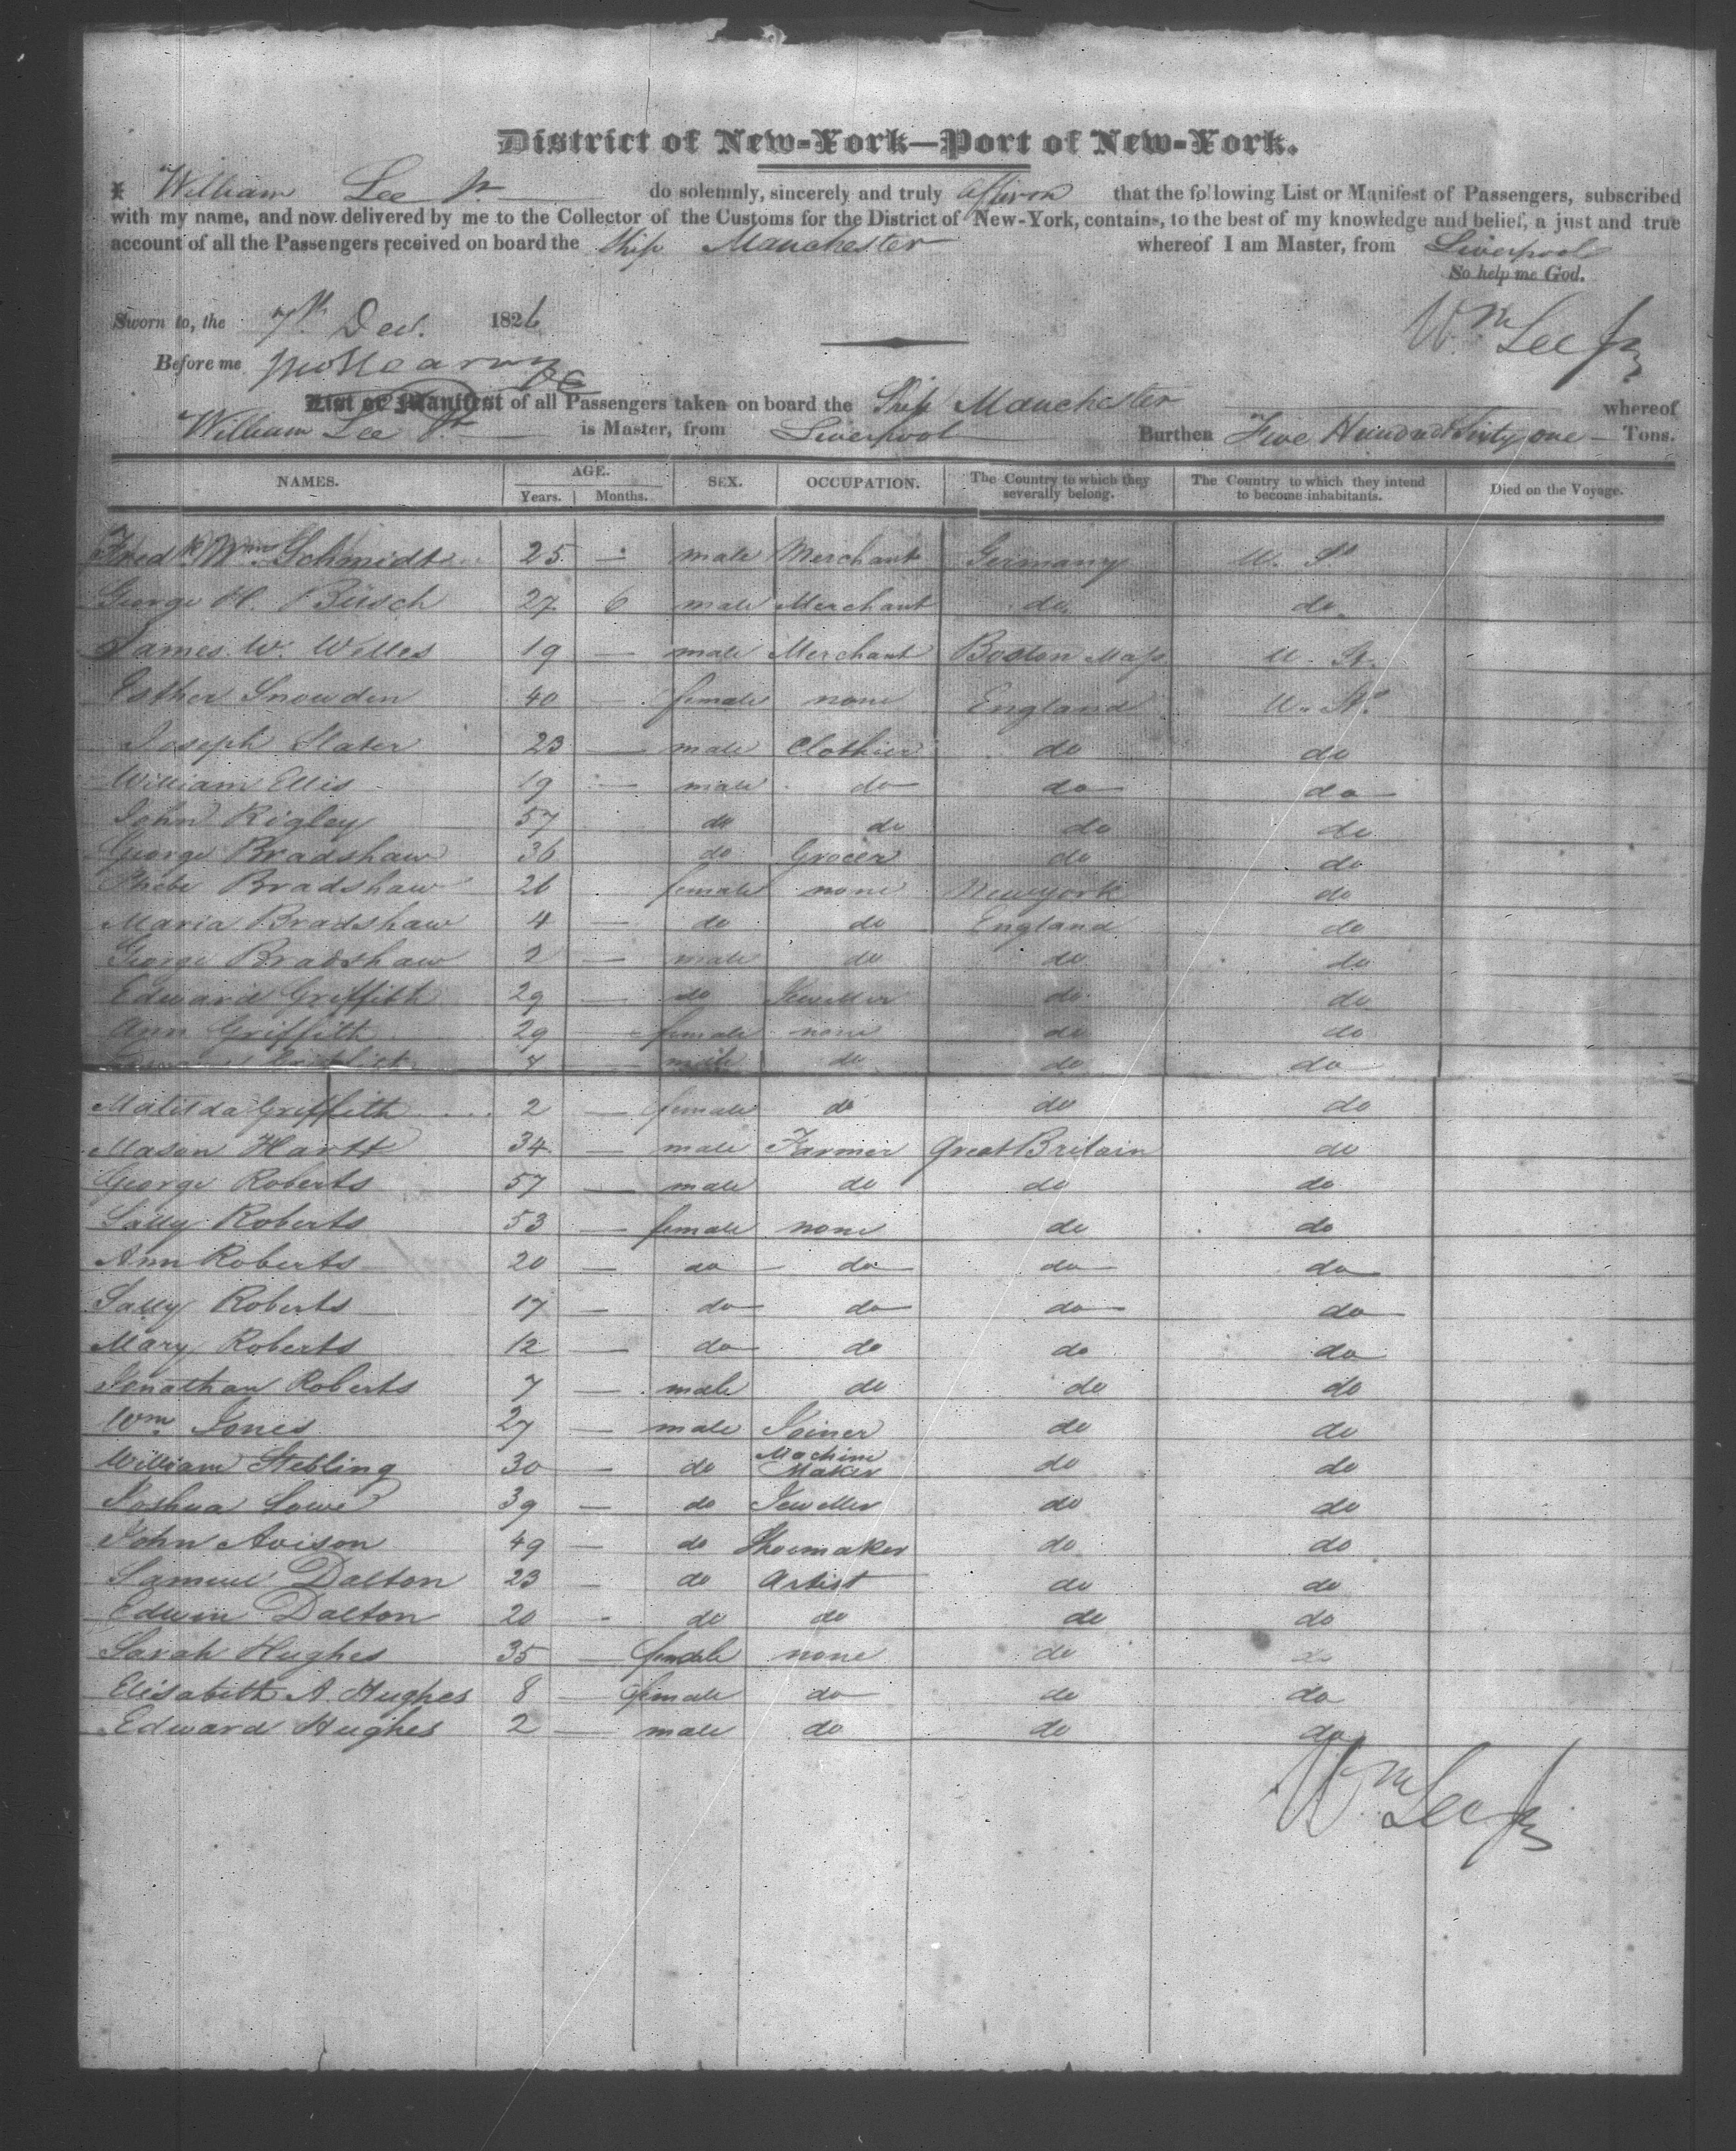 District of New-York—Port of New-York.
I William Lee Jr. do solemnly, sincerely and truly affirm that the following List or Manifest of Passengers, subscribed
with my name, and now delivered by me to the Collector of the Customs for the District of New-York, contains, to the best of my knowledge and belief, a just and true
account of all the Passengers received on board the Ship Manchester whereof I am Master, from Liverpool
So help me God.
Sworn to, the 7th Dec. 1826
Wm Lee Jr
Before me
List or Manifest of all Passengers taken on board the Ship Manchester whereof
William Lee Jr is Master, from Liverpool Burthen Five Hundred Sixty one Tons.
NAMES. AGE. Years. Months. SEX. OCCUPATION. The Country to which they severally belong. The Country to which they intend to become inhabitants. Died on the Voyage.
Fredk Wm Schmidt 25 — male Merchant Germany U. St
George H. Büsch 27 6 male Merchant do do
James W. Willes 19 — male Merchant Boston Mass U. St.
Esther Snowden 40 — female none England U. St.
Joseph Slater 23 — male Clothier do do
William Ellis 19 — male do do do
John Rigley 57 do do do do
George Bradshaw 36 do Grocer do do
Phebe Bradshaw 26 female none Newyork do
Maria Bradshaw 4 — do do England do
George Bradshaw 2 — male do do do
Edward Griffith 29 — do Jeweller do do
Ann Griffith 29 — female none do do
— male do do do
Matilda Griffith 2 — female do do do
Mason Hartt 34 — male Farmer Great Britain do
George Roberts 57 — male do do do
Sally Roberts 53 — female none do do
Ann Roberts 20 — do do do do
Sally Roberts 17 — do do do do
Mary Roberts 12 — do do do do
Jonathan Roberts 7 — male do do do
Wm. Jones 27 — male Joiner do do
William Stebling 30 — do Machine Maker do do
Joshua Lowe 39 — do Jeweller do do
John Avison 49 — do Shoemaker do do
Samuel Dalton 23 — do Artist do do
Edwin Dalton 20 - do do do do
Sarah Hughes 35 — female none do do
Elisabeth A. Hughes 8 — female do do do
Edward Hughes 2 — male do do do
Wm Lee Jr